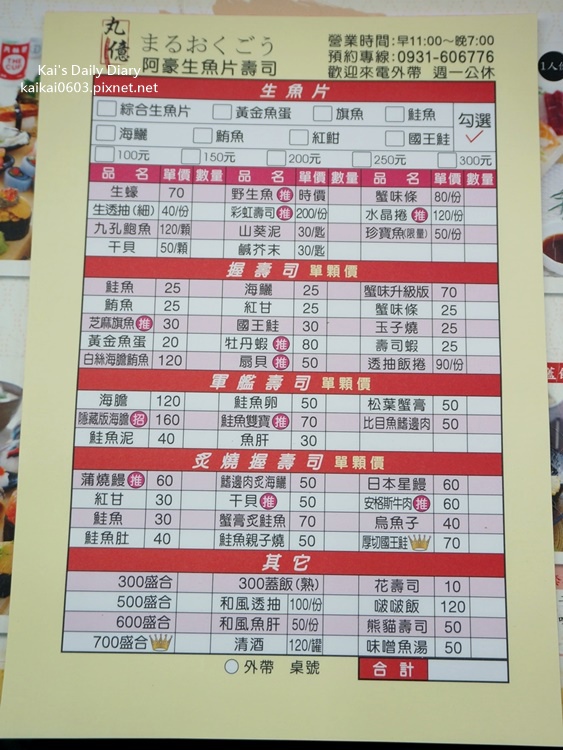 丸億
まるおくごう
阿豪生魚片壽司
營業時間:早11:00～晚7:00
預約專線:0931-606776
歡迎來電外帶 週一公休
Kai's Daily Diary
kaikai0603.pixnet.net
生魚片
綜合生魚片 黃金魚蛋 旗魚 鮭魚 勾選
海鱺 鮪魚 紅魽 國王鮭
100元 150元 200元 250元 300元
品名 單價 數量 品名 單價 數量 品名 單價 數量
生蠔 70 野生魚 推 時價 蟹味條 80/份
生透抽(細) 40/份 彩虹壽司 推 200/份 水晶捲 推 120/份
九孔鮑魚 120/顆 山葵泥 30/匙 珍寶魚(限量) 50/份
干貝 50/顆 鹹芥末 30/匙
握壽司 單顆價
鮭魚 25 海鱺 25 蟹味升級版 70
鮪魚 25 紅甘 25 蟹味條 25
芝麻旗魚 推 30 國王鮭 30 玉子燒 25
黃金魚蛋 20 牡丹蝦 推 80 壽司蝦 25
白絲海膽鮪魚 120 扇貝 推 50 透抽飯捲 90/份
軍艦壽司 單顆價
海膽 120 鮭魚卵 50 松葉蟹膏 50
隱藏版海膽 招 160 鮭魚雙寶 推 70 比目魚鰭邊肉 50
鮭魚泥 40 魚肝 30
炙燒握壽司 單顆價
蒲燒鰻 推 60 鰭邊肉炙海鱺 50 日本星鰻 60
紅甘 30 干貝 推 50 安格斯牛肉 推 60
鮭魚 30 蟹膏炙鮭魚 70 烏魚子 40
鮭魚肚 40 鮭魚親子燒 50 厚切國王鮭 70
其它
300盛合 300蓋飯(熟) 花壽司 10
500盛合 和風透抽 100/份 啵啵飯 120
600盛合 和風魚肝 50/份 熊貓壽司 50
700盛合 清酒 120/罐 味噌魚湯 50
外帶 桌號 合計